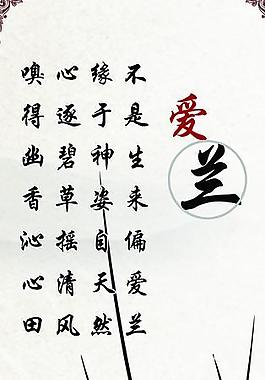 爱兰
不是生来偏爱兰
缘于神姿自天然
心逐碧草摇清风
嗅得幽香沁心田